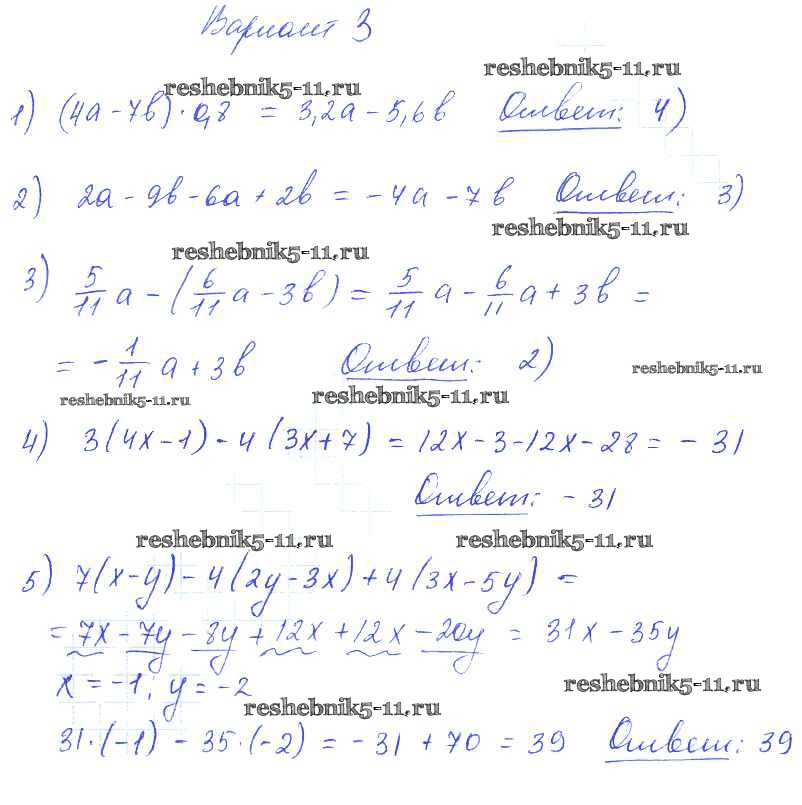 Вариант 3
reshebnik5-11.ru
reshebnik5-11.ru
1) (4a - 7b) · 0,8 = 3,2a - 5,6b Ответ: 4)
2) 2a - 9b - 6a + 2b = -4a - 7b Ответ: 3)
reshebnik5-11.ru
reshebnik5-11.ru
3) 5/11 a - (6/11 a - 3b) = 5/11 a - 6/11 a + 3b =
= - 1/11 a + 3b Ответ: 2)
reshebnik5-11.ru
reshebnik5-11.ru
reshebnik5-11.ru
4) 3(4x - 1) - 4(3x + 7) = 12x - 3 - 12x - 28 = - 31
Ответ: - 31
reshebnik5-11.ru
reshebnik5-11.ru
5) 7(x - y) - 4(2y - 3x) + 4(3x - 5y) =
= 7x - 7y - 8y + 12x + 12x - 20y = 31x - 35y
x = -1; y = -2
reshebnik5-11.ru
reshebnik5-11.ru
31 · (-1) - 35 · (-2) = - 31 + 70 = 39 Ответ: 39